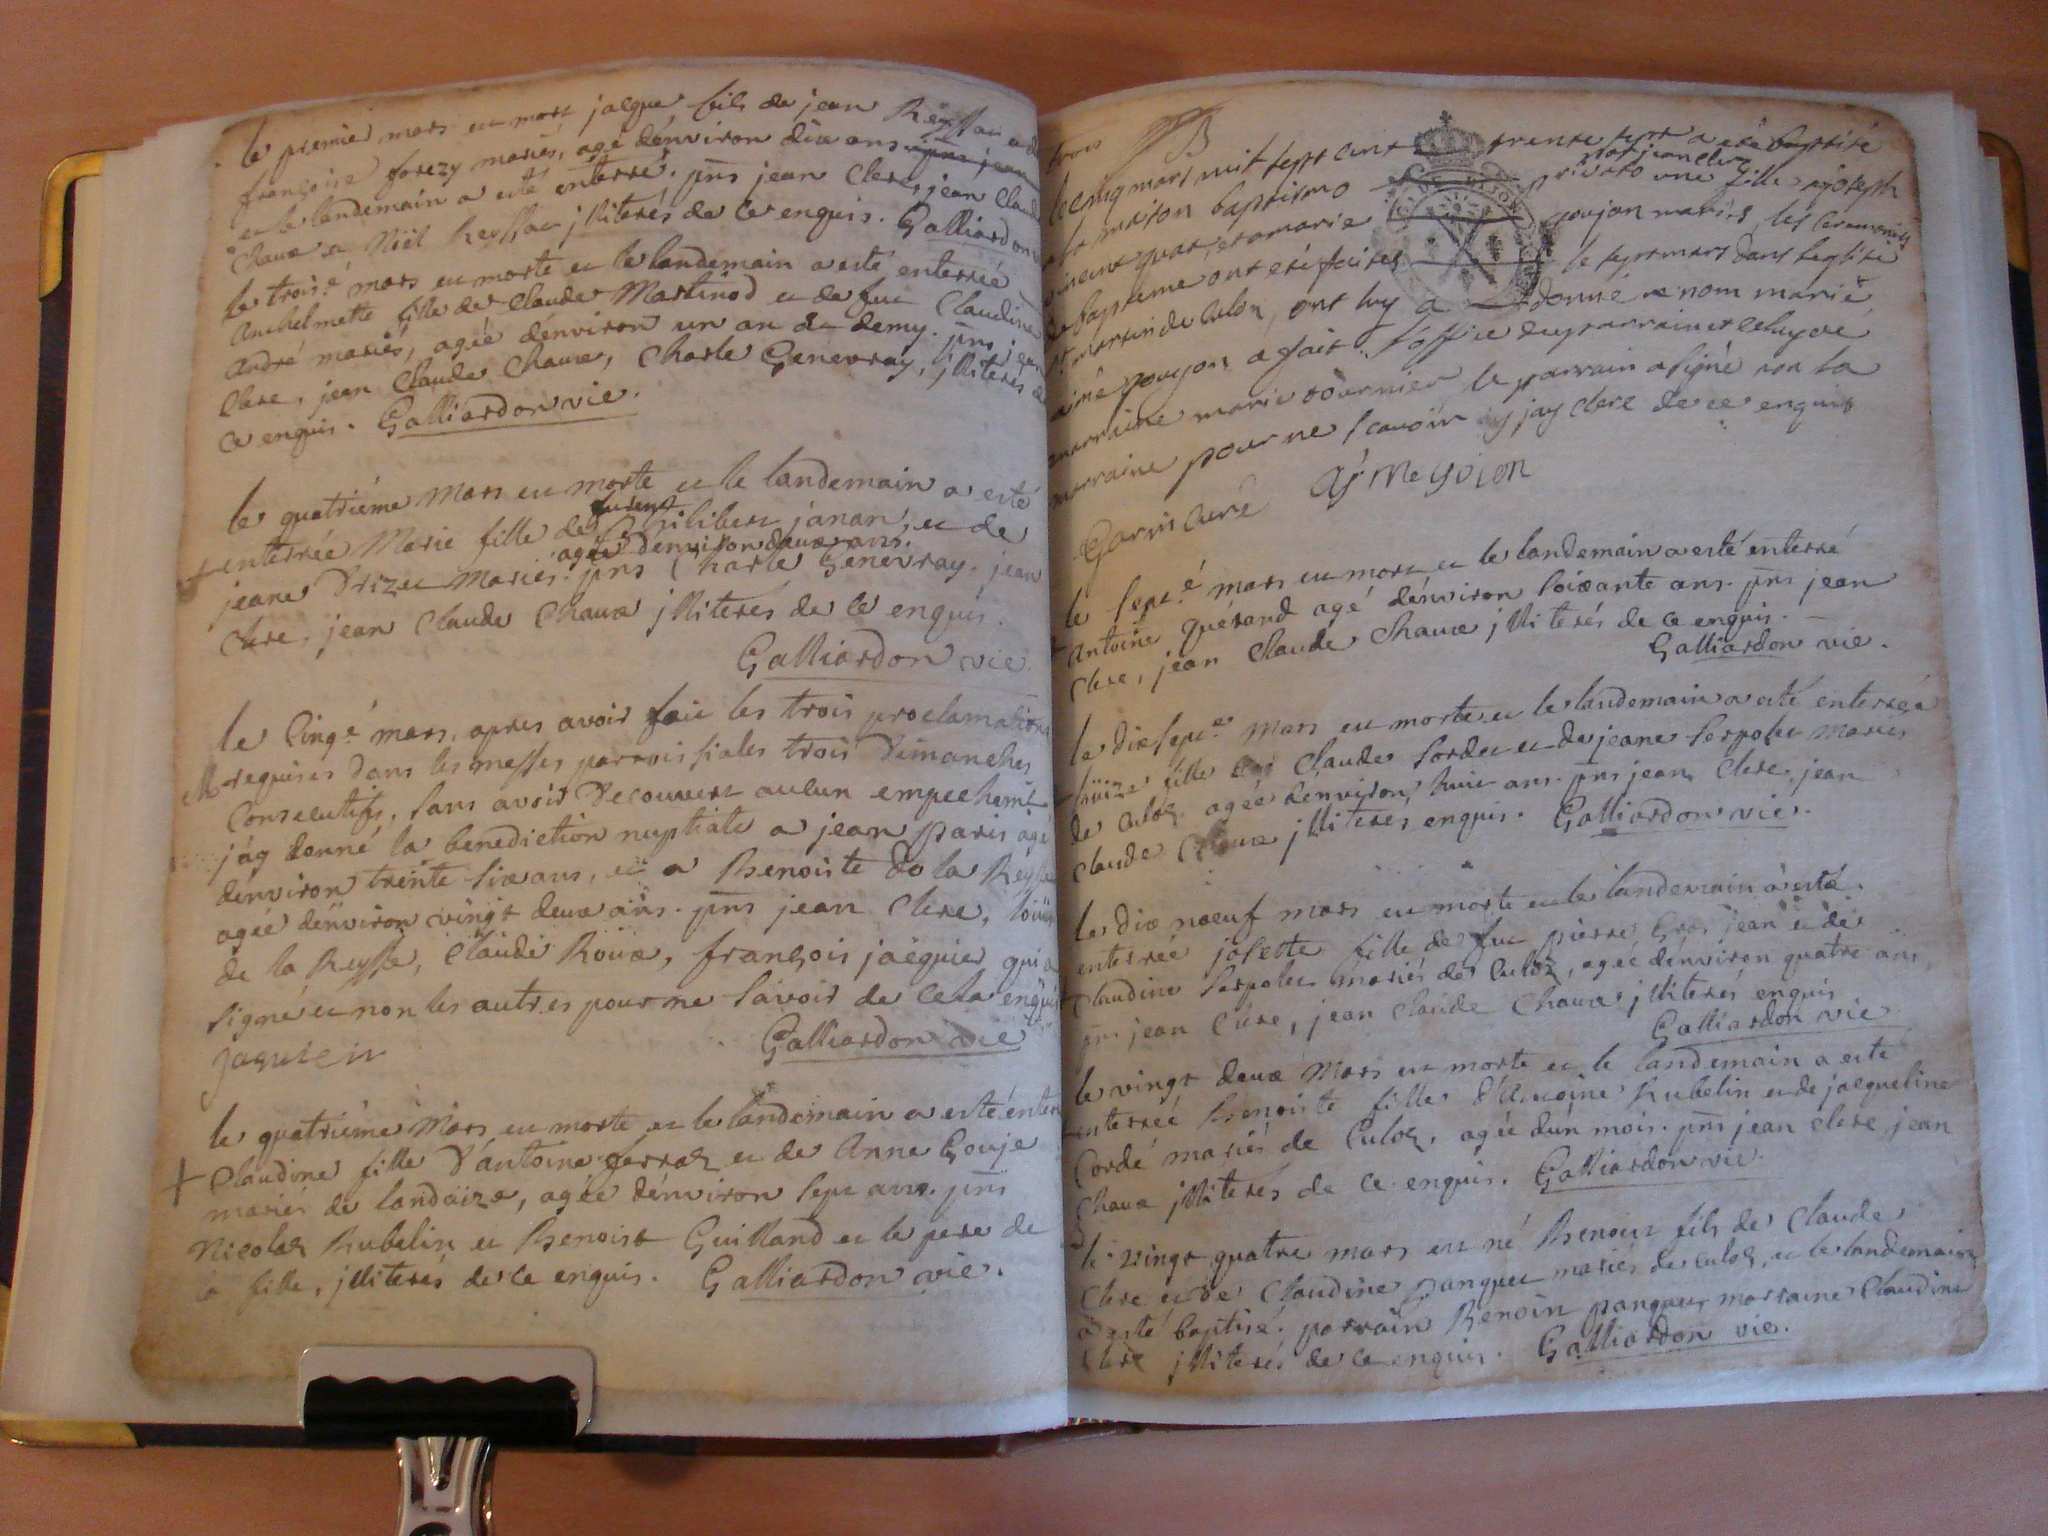 le premier mars est mort jacque, fils de jean Reyssau et de
françoise forezy mariés, agé d'environ dix ans
et le landemain a esté enterré. pns jean Clere, jean Claude
Chaux et Noël Reyssau jlliterés de ce enquis. Galliardon
le trois.e mars est morte et le landemain a esté enterrée
Anthelmette fille de Claude Martinod et de feue Claudine
André mariés, agée d'environ un an et demy. pns jean
Clere, jean Claude Chaux, Charle Genevray, jlliterés de
ce enquis. Galliardon vie.
le quatriéme mars est morte et le landemain a esté
enterrée Marie fille de Philibert janan, et de
agée d'environ deux ans.
jeane Prizet mariés. pns Charle Genevray. jean
Clere, jean Claude Chaux jlliterés de ce enquis.
Galliardon vie.
le Cinq.e mars, apres avoir fait les trois proclamations
M requises dans les messes parroissiales trois Dimanches
Consecutifs, sans avoir Decouvert aucun empechemt
j'ay donné la benediction nuptiale a jean paris agé
d'environ trente six ans, et a Benoite de la Reysse
agée d'environ vingt deux ans. pns jean Clere, Loüis
de la Reysse, Claude Roüx, françois jaquier qui a
signé et non les autres pour ne savoir de cela enquis
jaquier Galliardon vie
le quatriéme Mars est morte et le landemain a esté enter
Claudine fille d'antoine ferraz et de Anne Gouje
mariés de landaize, agée d'environ sept ans. pns
Nicolas Rubelin et Benoist Guilland et le pere de
la fille, jlliterés de ce enquis. Galliardon vie.
trois
le cinq mars mil sept cent trente sept a esté baptisé
a la maison baptismo privato par jean Clerc une fille a joseph
vincent quat, et a marie goujon mariés, les ceremonies
de bapteme ont eté faites le sept mars dans l'eglise
st martin de Culoz, ont luy a donné nom marie
aimé goujon a fait l'office du parrain et celuy de
marraine marie tournier le parrain a signé non la
marraine pour ne scavoir jay clerc de ce enquis
Gavin Curé
le sept.e mars est mort et le landemain a esté enterré
Antoine Guérand agé d'environ soixante ans. pns jean
Clere, jean Claude Chaux jlliterés de ce enquis.
Galliardon vie.
le dix sept.e Mars est morte et le landemain a esté enterrée
Loüize fille de Claude Sordet et de jeane Serpolet mariés
de Culoz agée d'environ huit ans. pns jean Clere, jean
Claude Chaux jlliterés enquis. Galliardon vie.
le dix noeuf mars est morte et le landemain a esté
enterrée josette fille de feu pierre Gros jean et de
Claudine Serpolet mariés de Culoz, agée d'environ quatre ans
pns jean Clere, jean Claude Chaux jlliterés enquis
Galliardon vie
le vingt deux Mars est morte et le landemain a esté
enterrée Benoite fille d'Antoine Rubelin et de jacqueline
Cordé mariés de Culoz, agée d'un mois. pns jean Clere jean
Chaux jlliterés de ce enquis. Galliardon vie.
le vingt quatre mars est né Benoit fils de Claude
Clere et de Claudine panguet mariés de culoz, et le landemain
a esté baptisé. parrain Benoin panguet marraine Claudine
Clere jlliterés de ce enquis. Galliardon vie.